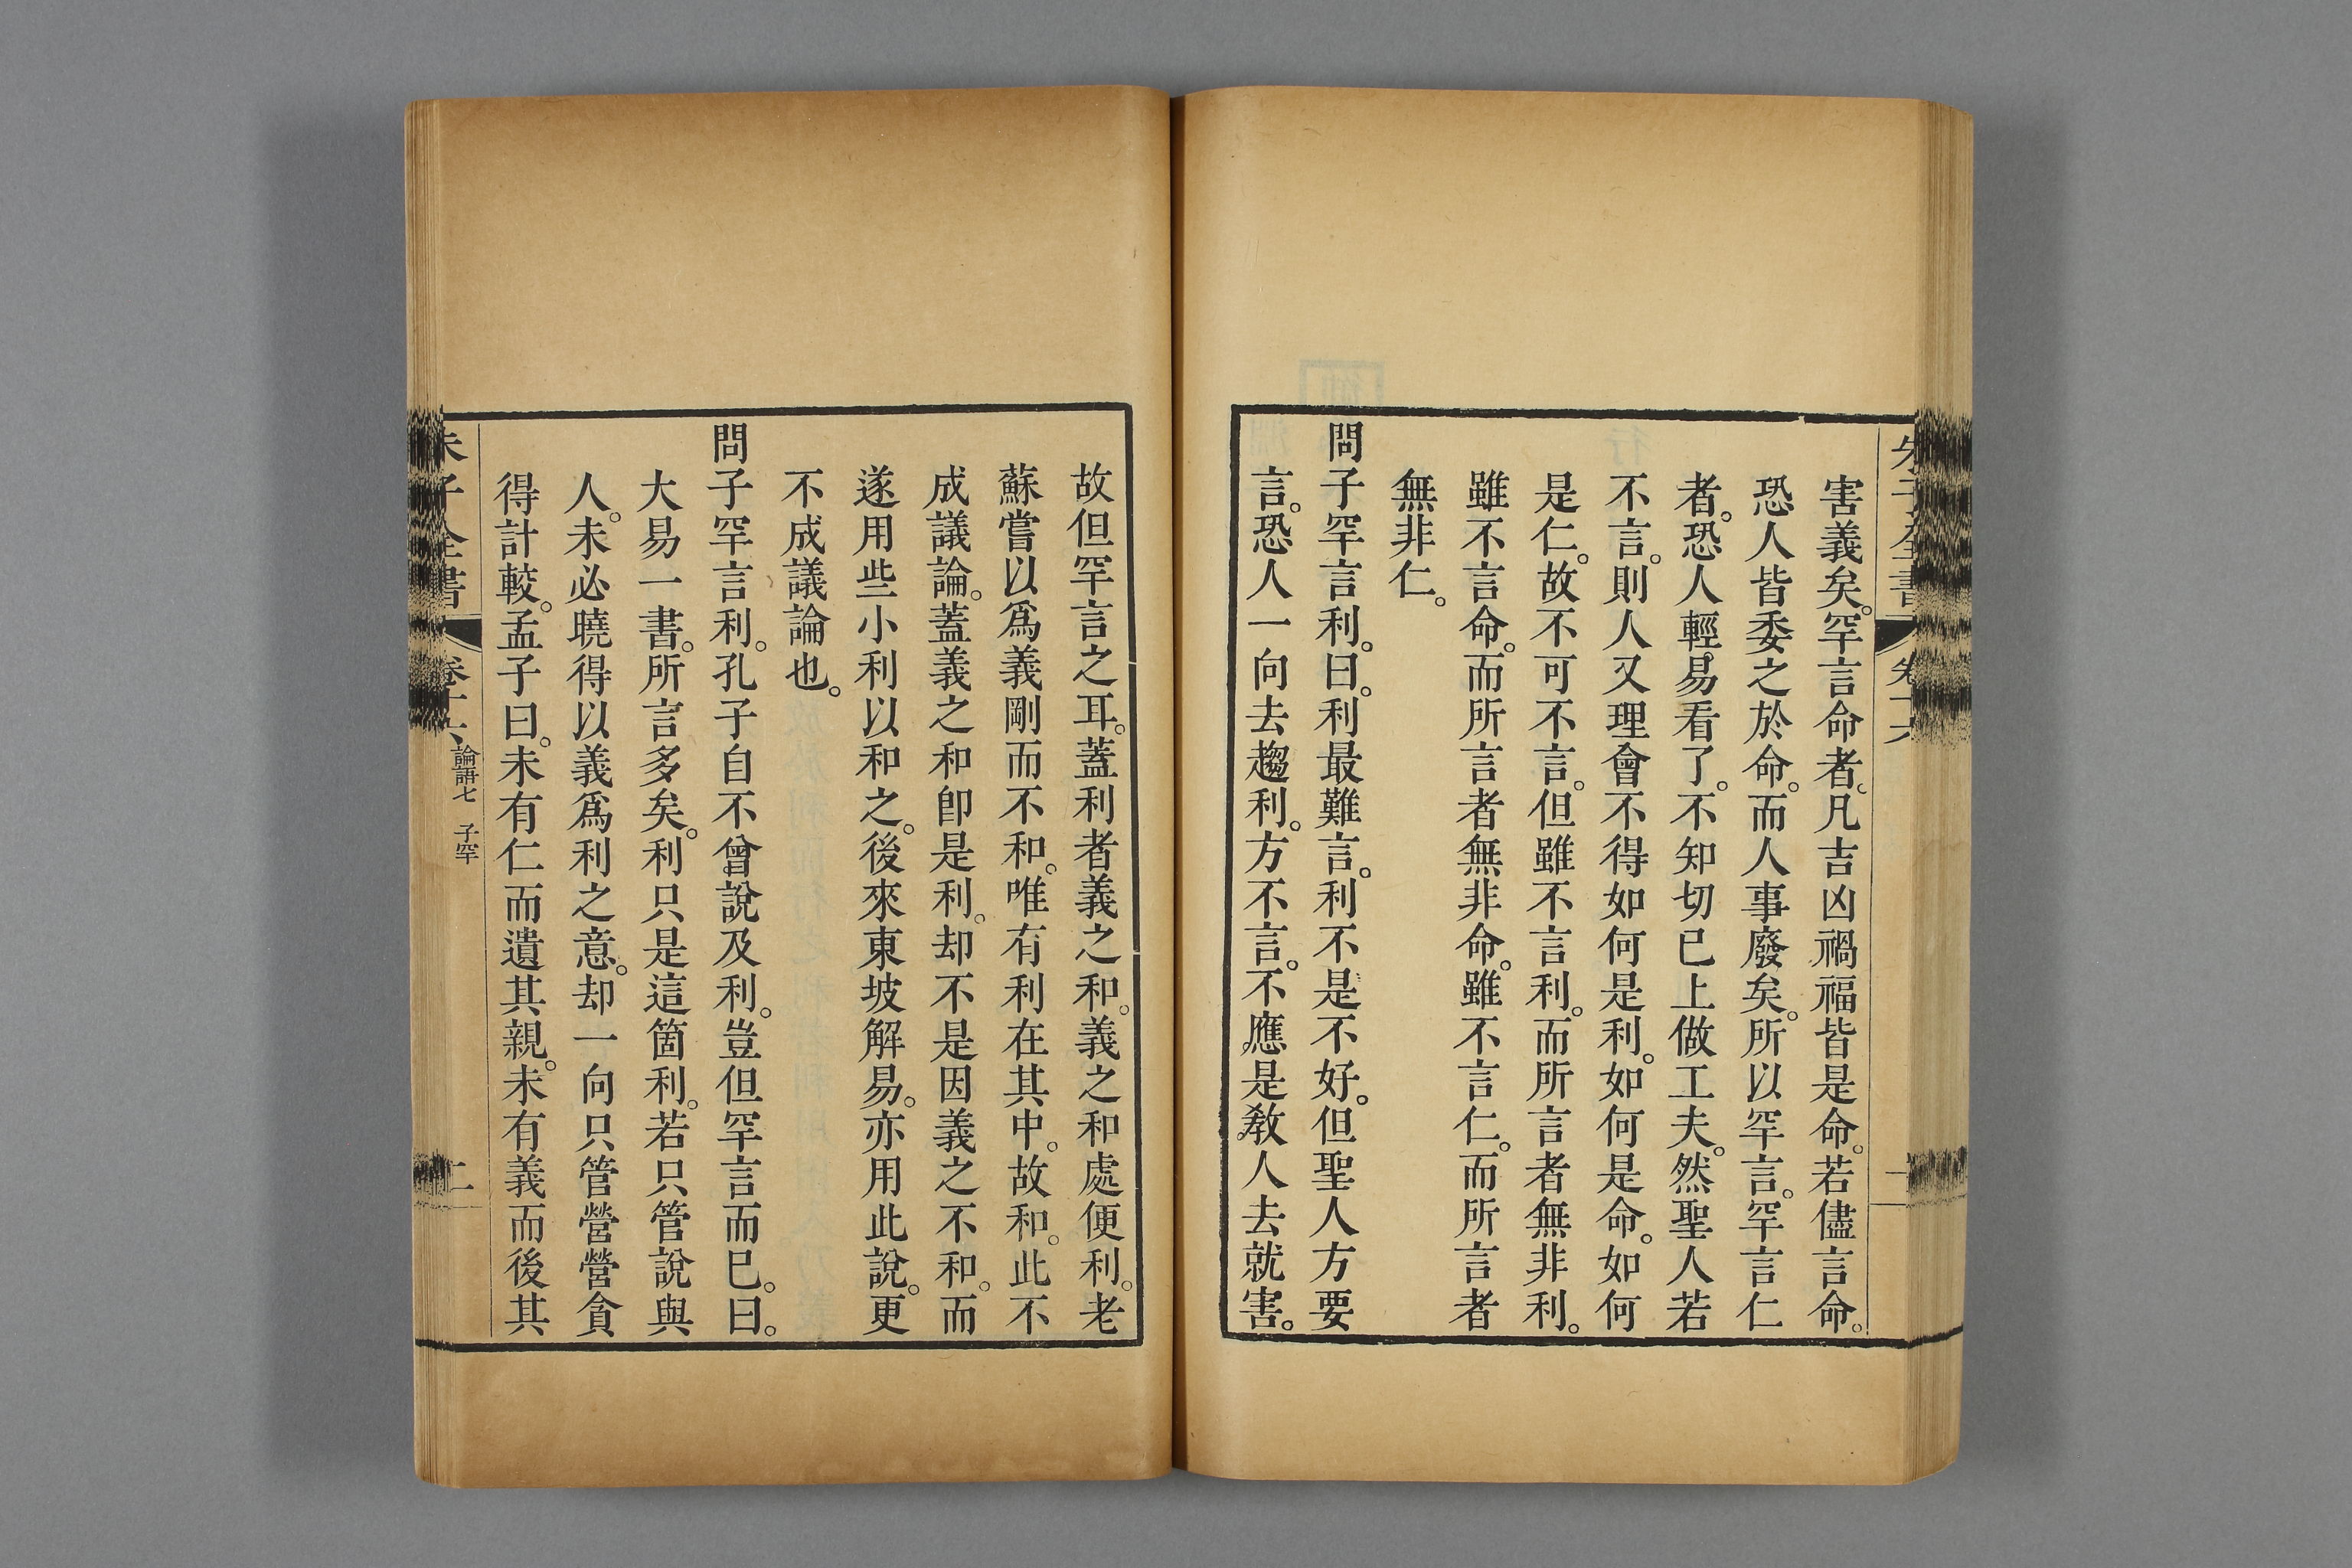 朱子全書 卷十六
害義矣。罕言命者。凡吉凶禍福皆是命。若儘言命。
恐人皆委之於命。而人事廢矣。所以罕言。罕言仁
者。恐人輕易看了。不知切己上做工夫。然聖人若
不言。則人又理會不得如何是利。如何是命。如何
是仁。故不可不言。但雖不言利。而所言者無非利。
雖不言命。而所言者無非命。雖不言仁。而所言者
無非仁。
問子罕言利。曰。利最難言。利不是不好。但聖人方要
言。恐人一向去趨利。方不言。不應是教人去就害。
故但罕言之耳。蓋利者義之和。義之和處便利。老
蘇嘗以爲義剛而不和。唯有利在其中。故和。此不
成議論。蓋義之和卽是利。却不是因義之不和。而
遂用些小利以和之。後來東坡解易。亦用此說。更
不成議論也。
問子罕言利。孔子自不曾說及利。豈但罕言而已。曰。
大易一書。所言多矣。利只是這箇利。若只管說與
人。未必曉得以義爲利之意。却一向只管營營貪
得計較。孟子曰。未有仁而遺其親。未有義而後其
朱子全書 卷十六 論語七 子罕 二